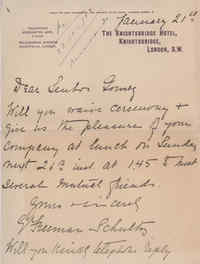 January 21st
THE KNIGHTSBRIDGE HOTEL,
KNIGHTSBRIDGE,
LONDON, S.W.
Dear Senhor Gomez
Will you waive ceremony &
give us the pleasure of your
company at lunch on Sunday
next 26th inst. at 1.45 to meet
several mutual friends.
Yours sincerely
Freeman Schultz
Will you kindly telephone reply